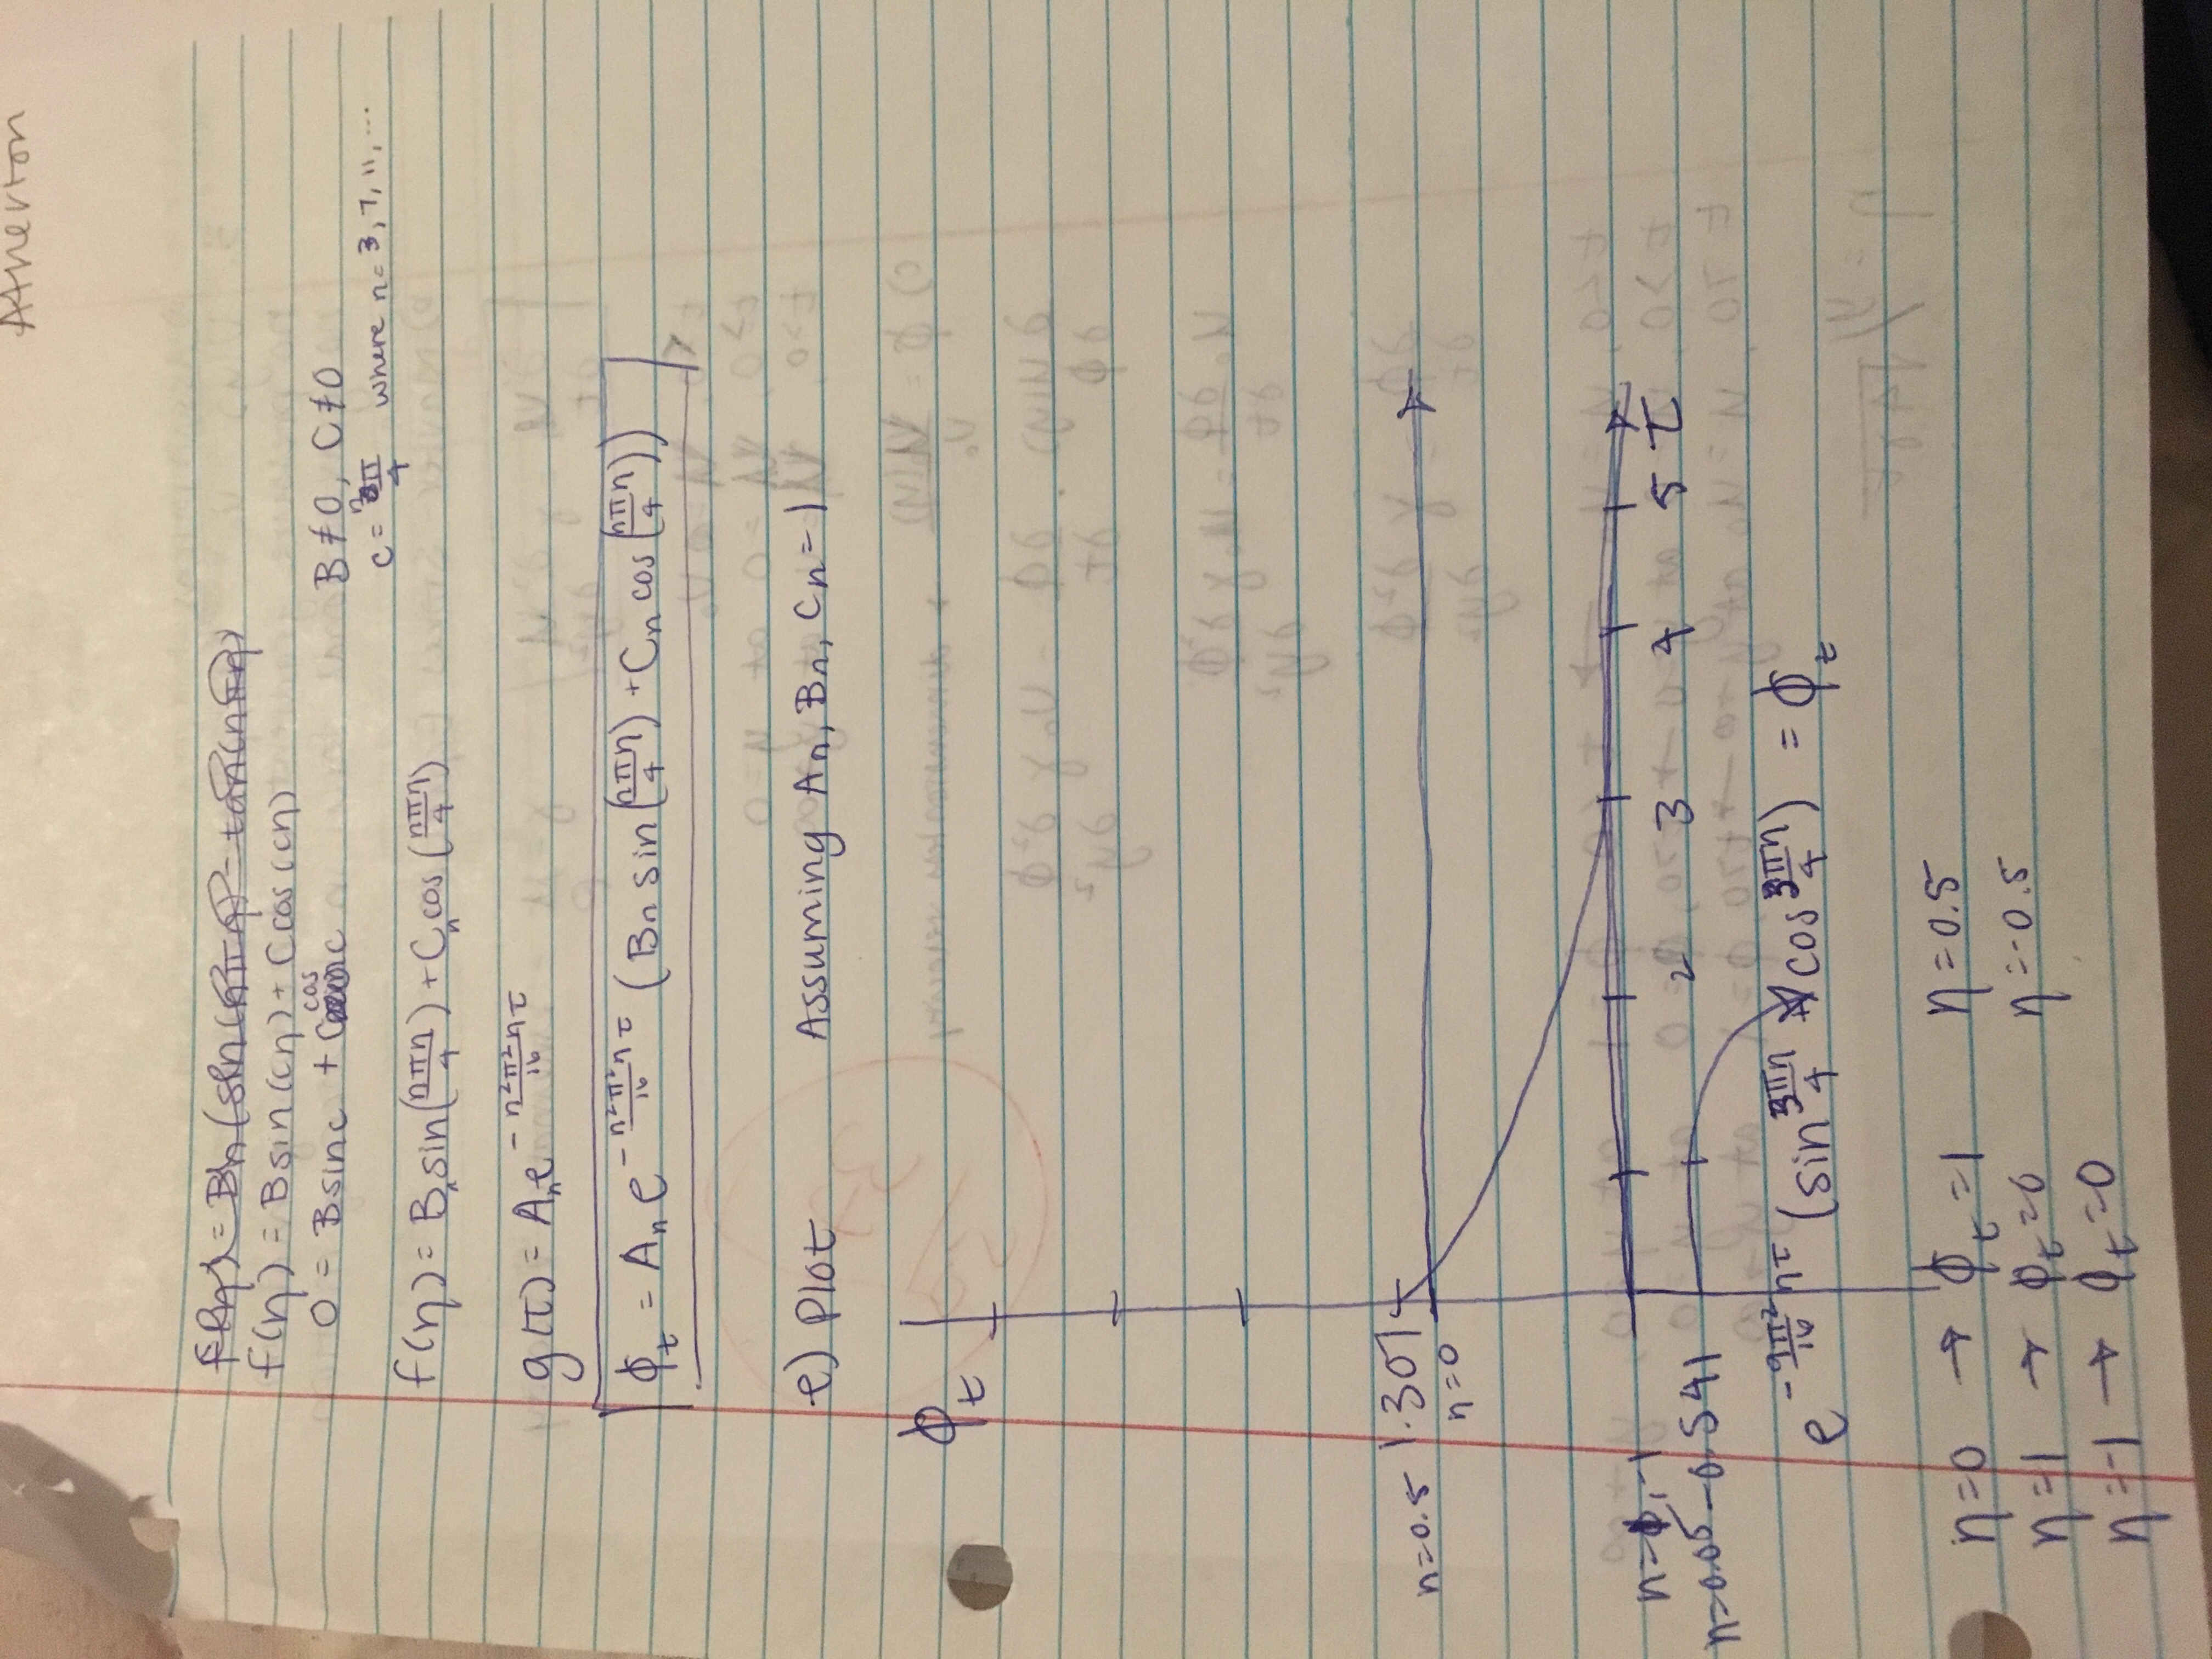 Atherton
f(η) = Bn (sin(nπη) - tan(nπη)
f(η) = B sin(cη) + C cos(cη)
0 = B sin c + C cos c B ≠ 0, C ≠ 0
c = nπ/4 where n = 3, 7, 11, ...
f(η) = Bn sin(nπη/4) + Cn cos(nπη/4)
g(τ) = An e^(-n²π²/16 ητ)
ϕt = An e^(-n²π²/16 ητ) (Bn sin(nπη/4) + Cn cos(nπη/4))
e) Plot Assuming An, Bn, Cn = 1
ϕt
η=0.5 1.307
η=0
η= 1, -1
2 3 4 5 τ
η=0.05 -0.541
e^(-9π²/16 ητ) (sin 3πη/4 + cos 3πη/4) = ϕt
η=0 → ϕt = 1 η=0.5
η=1 → ϕt = 0 η=-0.5
η=-1 → ϕt = 0